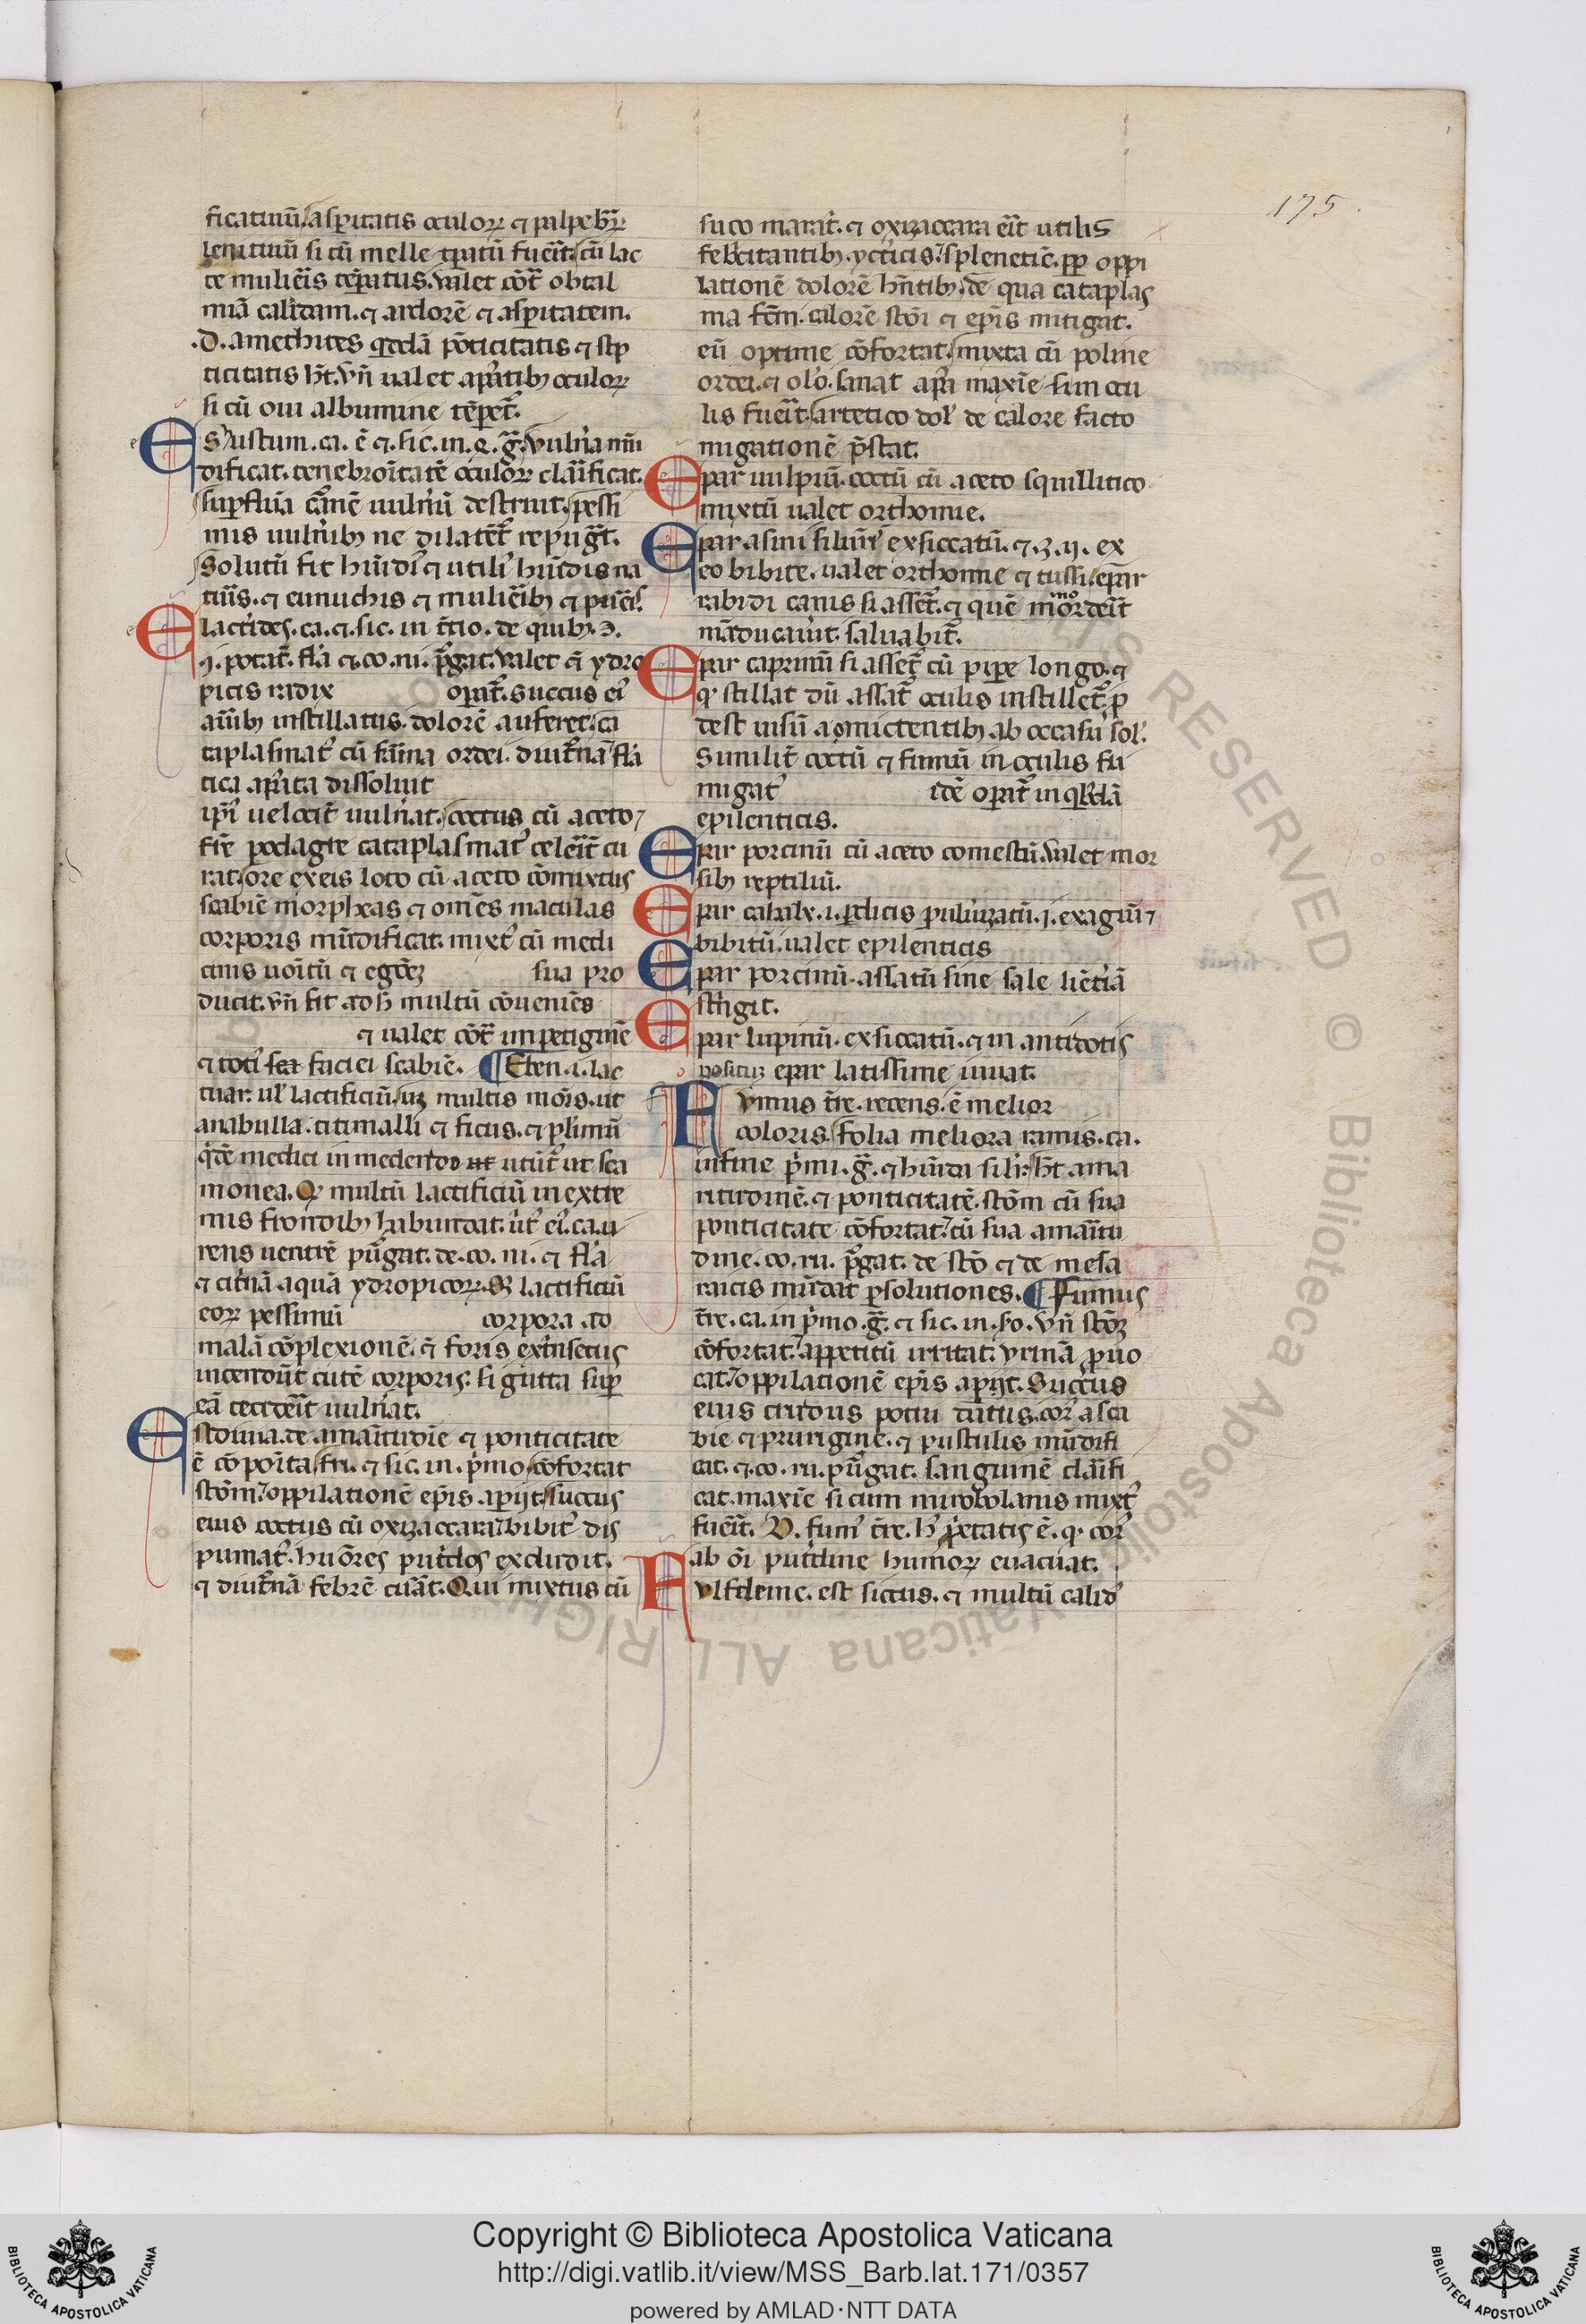 175.
ficatiuū. asp̄itatis oculoꝝ ⁊ palpebrꝝ
lenitiuū si cū melle tꝑatū fuerit. cū lac
te mulieris tēꝑatus. ualet cōtͣ obtal
miā calidam. ⁊ ardorē ⁊ asp̄itatem.
.D. amethites qͣdā pōticitatis ⁊ stip
ticitatis hꝫ. vn̄ ualet aꝑatibꝫ oculoꝝ
si cū oui albumine tēꝑet᷑.
Es ustum. ca. ē ⁊. sic. in. q. gͣ. vulnͣa mū
dificat. tenebrositatē oculoꝝ clarificat.
suꝑflua carnē uulnerū destruit. pessi
mis uulneribꝫ ne dilatet᷑ repugͣt.
Solutū fit humidꝰ ⁊ utilꝰ humidis na
turis. ⁊ eunuchis ⁊ mulieribꝫ ⁊ pueris.
Elacterides. ca. ⁊. sic. in t̄cio. de quibꝫ. ʒ.
j. potat᷑. fla ⁊. co. ni. purgat. valet ⁊ ydro
picis radix oꝑat᷑. succus eiꝰ
auribꝫ instillatus. dolorē auferet. ca
taplasmatꝰ cū farina ordei. diut᷑nā fla
tica aꝑata dissoluit
ip̄i uelocit᷑ uulnerat. coctus cū aceto ⁊
fr̄e podagre cataplasmatꝰ celerit᷑ cu
rat. ore ex eis loto cū aceto cōmixtus
scabiē morpheas ⁊ omēs maculas
corporis mūdificat. mixtꝰ cū medi
cinis uomitū ⁊ egōeꝫ sua pro
ducit. vn̄ fit ad h̄ multū cōueniēs
⁊ valet cōtͣ impetiginē
⁊ totiꝰ sca faciei scabiē. ¶ Eten. i. lac
tuar. ul̓ lactificiū. iuꝫ multis moris. ut
anabulla. titimalli ⁊ ficus. ⁊ plʼimū
qͥdē medici in medendo ut utūt᷑ ut sca
monea. Qꝰ multū lactificiū in extre
mis frondibꝫ habundat. ut̓ eiꝰ. ca. u
rens uentrē purgat. de. co. ni. ⁊ fla
⁊ citrinā aquā ydropicoꝝ. Sꝫ lactificiū
eoꝝ pessimū corpora ad
malā cōplexionē. ⁊ foris extrinsecus
incendūt cutē corporis. si gutta suꝑ
eā ceciderit uulnerat.
Estoiua. de amaritudie ⁊ ponticitate
ē cōposita. fri. ⁊ sic. in. pͥmo. cōfortat
stōm. oppilationē epr̄is aperit. succus
eius coctus cū oxizaccara bibitꝰ dis
pumatꝰ. humores putridos excludit.
⁊ diut᷑nā febrē curat. Qui mixtus cū
suco marat᷑. ⁊ oxizaccara erit utilis
febricitantibꝫ. yctericis. splenetic̄. ꝓp oppi
lationē dolorē hn̄tibꝫ. de qua cataplas
ma fcm̄. calorē stōi ⁊ epr̄is mitigat.
eū optime cōfortat. mixta cū poline
ordei. ⁊ oleo. sanat apa maxime si in ocu
lis fuerit. artetico dol̓ de calore facto
migationē p̄stat.
Epar uulpiū. coctū cū aceto squillitico
mixtū ualet orthomie.
Epar asini siluri exsiccatū. ⁊. ʒ. ij. ex
eo bibite. ualet orthomie ⁊ tussi. epar
rabidi canis si asset᷑. ⁊ quē momorderit
māducauit. saluabit᷑.
Epar caprinū si asset᷑ cū piꝑe longo. ⁊
qꝰ stillat dū assat᷑ oculis instillet᷑. ꝓ
dest uisū amictentibꝫ ab occasu sol̓.
Similit᷑ coctū ⁊ fumū in oculis fu
migatꝰ idē oꝑat᷑ in qͥbꝰdā
epilenticis.
Epar porcinū cū aceto comestū. valet mor
sibꝫ reptiliū.
Epar cahalx. i. ꝑdicis pulu̓izatū. j. exagiū ⁊
bibitū. ualet epilenticis
Epar porcinū. assatū sine sale liēt̓iā
strīgit.
Epar lupinū. exsiccatū. ⁊ in antidotis
positus epar latissime iuuat.
Fvmus tr̄e. recens. ē melior
coloris. folia meliora ramis. ca.
in fine pͥmi. gͣ. ⁊ humida silr̄. hꝫ ama
ritudinē. ⁊ ponticitatē. stōm cū sua
ponticitate cōfortat. cū sua amaritu
dine. co. ru. purgat. de stō ⁊ de mesa
raicis mūdat ꝑsolutiones. ¶ Fumus
tr̄e. ca. in pͥmo. gͣ. ⁊ sic. in. so. vn̄ stōꝫ
cōfortat. appetitū irritat. vrinā ꝓuo
cat. oppilationē epr̄is aperit. Succus
eius crudus potui datus. cor̓ a sca
bie ⁊ prurigine. ⁊ pustulis mūdifi
cat. ⁊. co. ru. purgat. sanguinē clarifi
cat. maxie si cum mirobolanis mixtꝰ
fuerit. D. fumꝰ tr̄e. hꝰ ꝓp̄etatis ē. qꝰ cor̓
ab oī putridine humoꝝ euacuat.
Fvlfdemic. est siccus. ⁊ multū calidꝰ
Copyright © Biblioteca Apostolica Vaticana
http://digi.vatlib.it/view/MSS_Barb.lat.171/0357
powered by AMLAD·NTT DATA
BIBLIOTECA APOSTOLICA VATICANA
BIBLIOTECA APOSTOLICA VATICANA